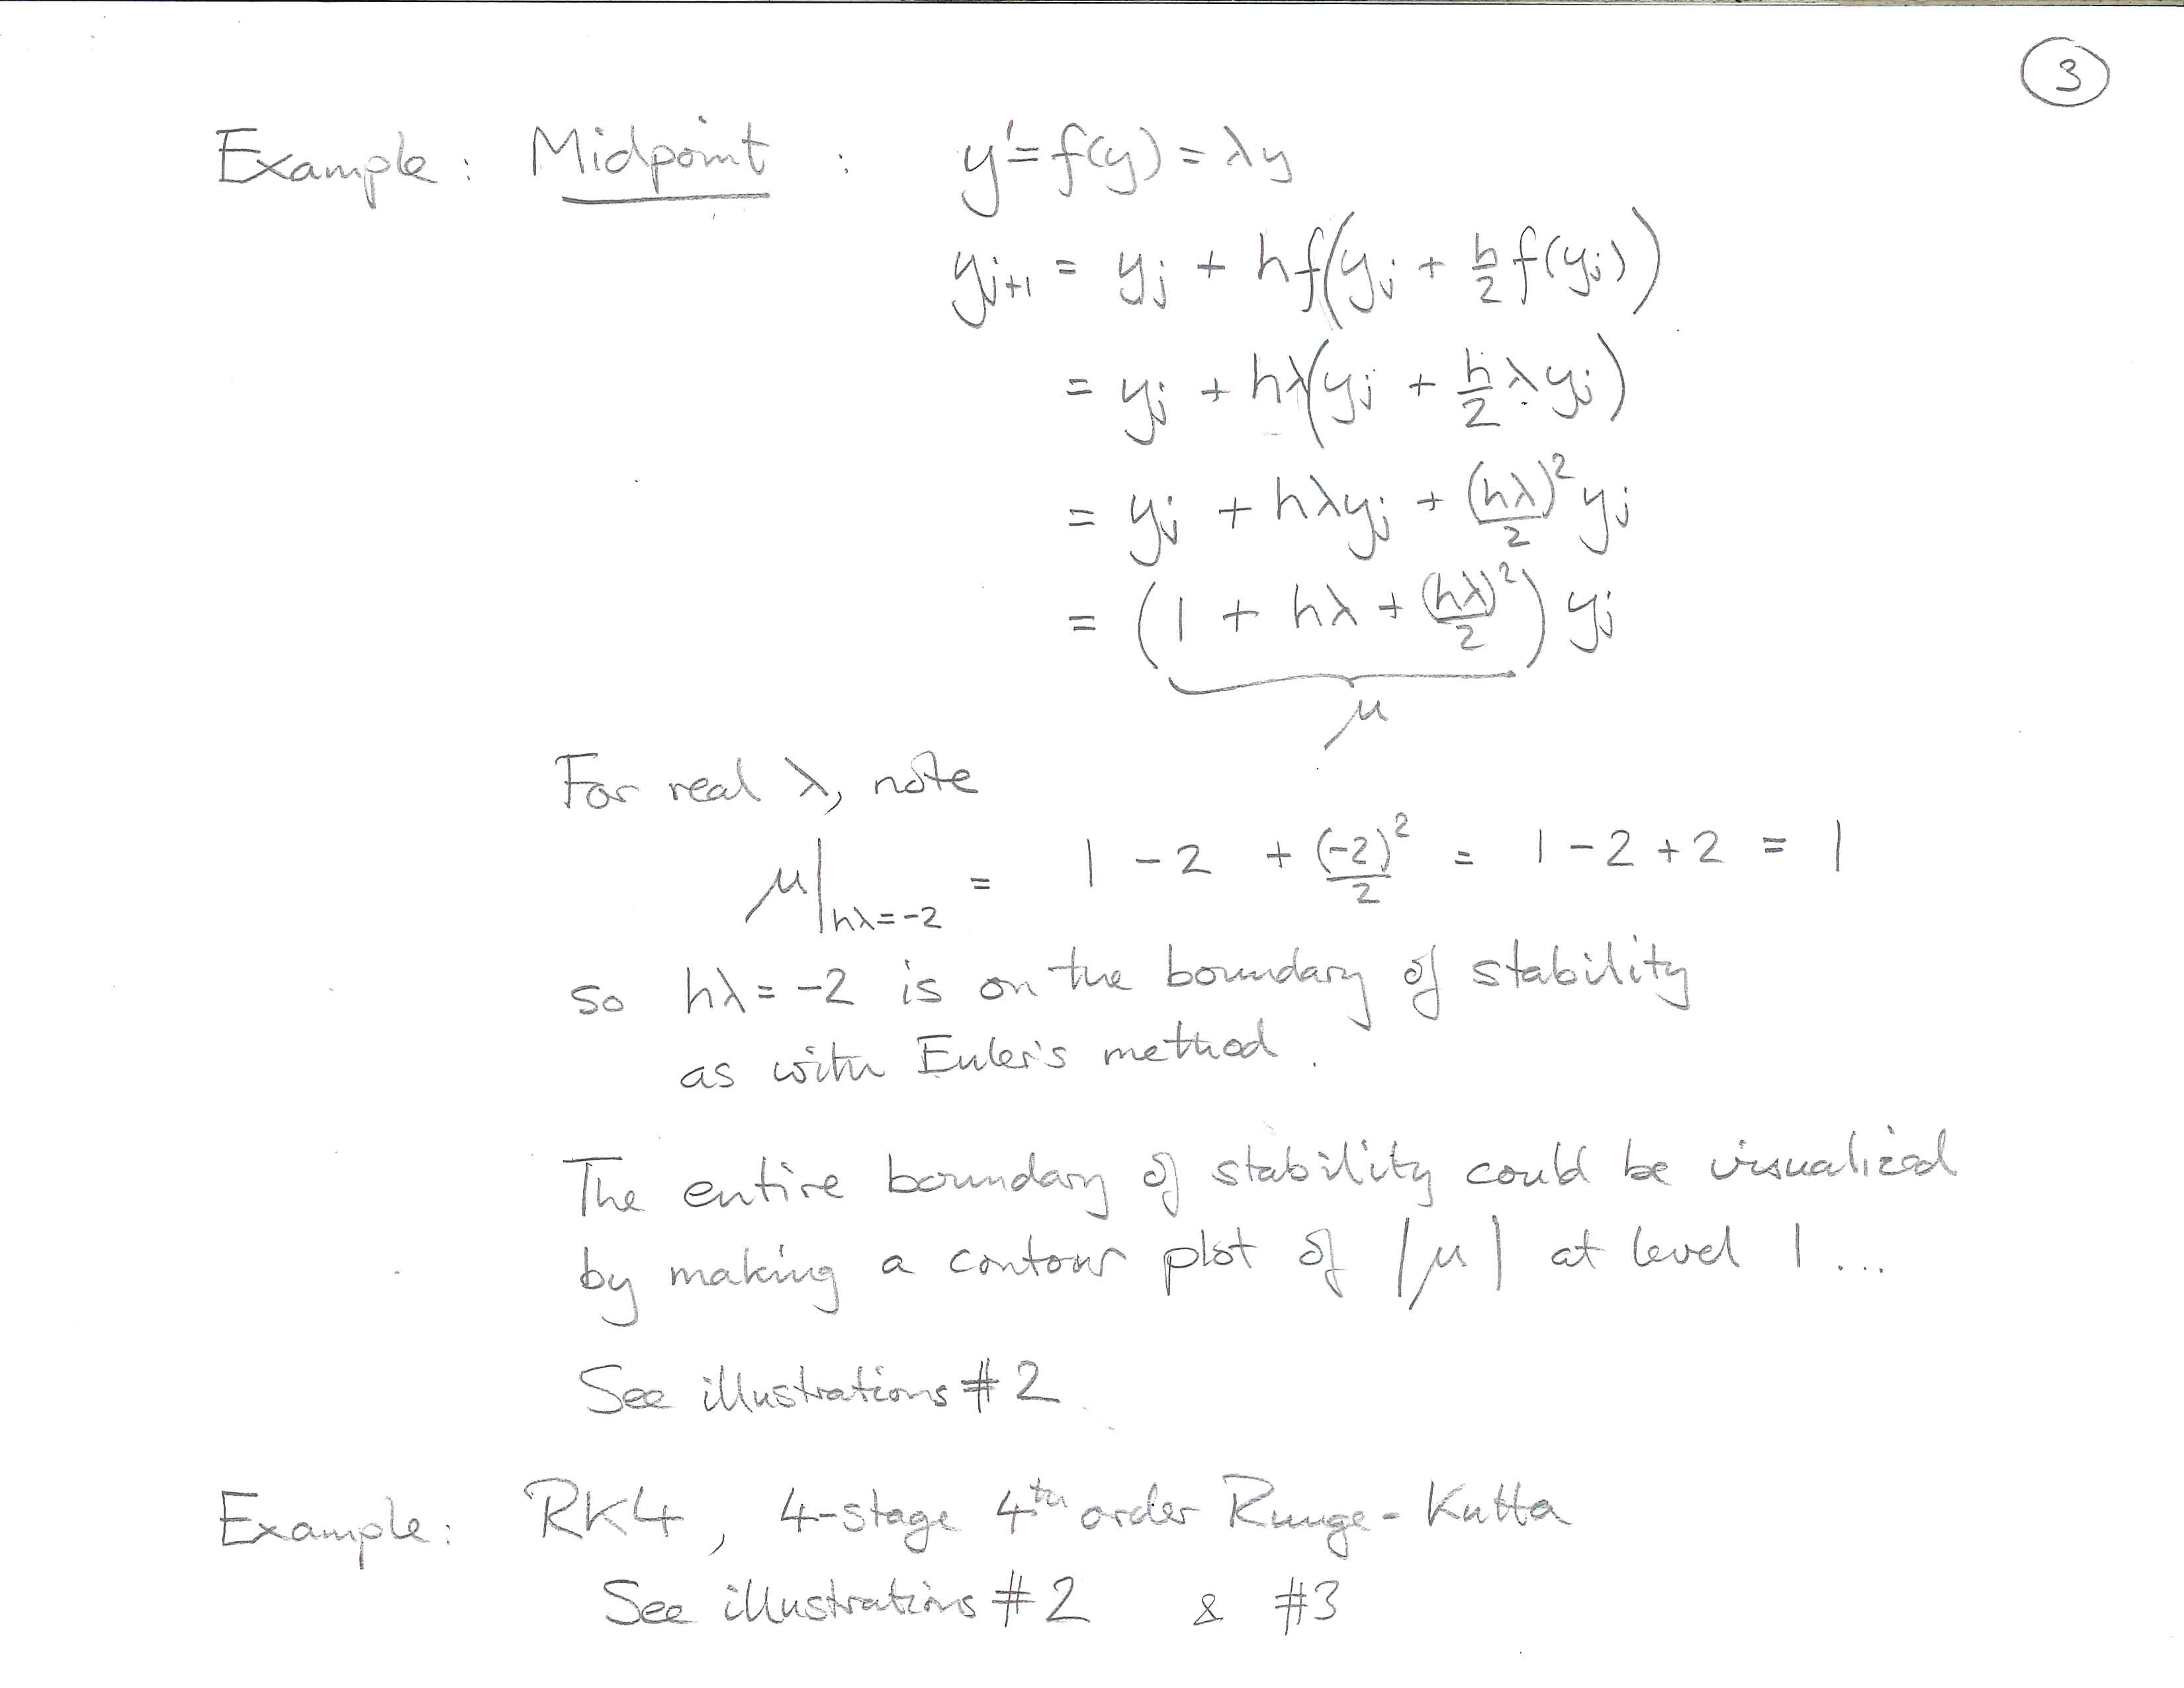 3
Example: Midpoint : y' = f(y) = λy
y_{j+1} = y_j + hf(y_j + h/2 f(y_j))
= y_j + hλ(y_j + h/2 λ y_j)
= y_j + hλy_j + (hλ)²/2 y_j
= (1 + hλ + (hλ)²/2) y_j
μ
For real λ, note
μ|_{hλ=-2} = 1 - 2 + (-2)²/2 = 1 - 2 + 2 = 1
so hλ = -2 is on the boundary of stability
as with Euler's method.
The entire boundary of stability could be visualized
by making a contour plot of |μ| at level 1...
See illustrations #2
Example: RK4, 4-stage 4th order Runge-Kutta
See illustrations #2 & #3